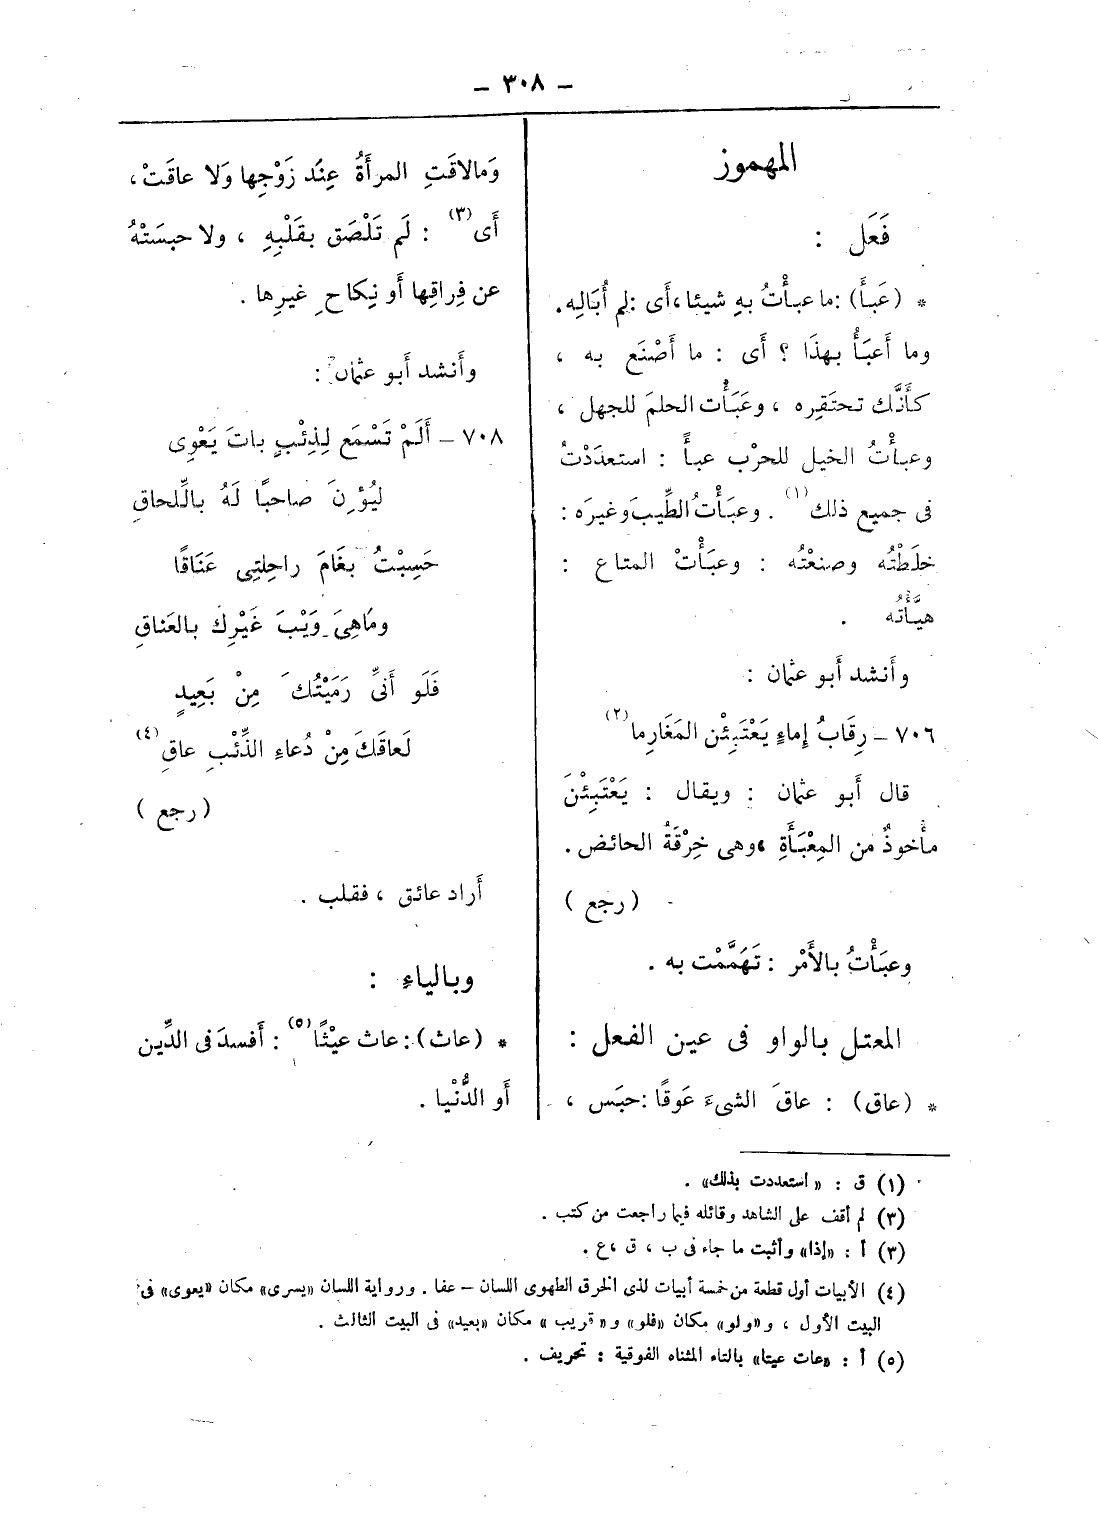 – ٣٠٨ –
المهموز
فَعَل :
* (عَبَأَ) : ما عبأْتُ بهِ شيئا، أَى : لم أُبَالِه.
وما أَعبَأُ بهذَا ؟ أَى : ما أَصْنَع به ،
كأَنَّك تحتَقِره ، وعَبَأْت الحلمَ للجهل ،
وعبأْتُ الخيل للحرْب عبأً : استعدَدْتُ
فى جميع ذلك (١) . وعبَأْتُ الطِّيبَ وغيرَه :
خلَطْتُه وصنعْتُه : وعبَأْتْ المتاع :
هيَّأته .
وأَنشد أَبو عثمان :
٧٠٦ – رِقَابُ إِماءٍ يَعْتَبِئْن المَغَارِما (٢)
قال أَبو عثمان : ويقال : يَعْتَبِئْنَ
مأْخوذٌ من المِعْبَأَةِ ، وهى خِرْقَةُ الحائض .
(رجع)
وعبَأْتُ بالأَمْر : تَهَمَّمْت به .
المعتل بالواو فى عين الفعل :
* (عاق) : عاقَ الشىءَ عَوقًا : حبَس ،
وَمالاقَتِ المرأَةُ عِنْد زَوْجِها وَلا عاقَتْ ،
أَى (٣) : لَم تَلْصَق بقَلْبِهِ ، ولا حبسَتْهُ
عن فِراقِها أَو نِكاحِ غيرِها .
وأَنشد أَبو عثمان :
٧٠٨ – أَلَمْ تَسْمَع لِذِئْبٍ باتَ يَعْوِى
ليُؤْذِنَ صاحبًا لَهُ باللِّحاقِ
حَسِبْتُ بغَامَ راحِلتِى عَنَاقًا
ومَاهِىَ وَيْبَ غَيْرِكَ بالعَناقِ
فَلَو أَنىِّ رَمَيْتُكَ مِنْ بَعِيدٍ
لَعاقَكَ مِنْ دُعاءِ الذِّئْبِ عاقِ (٤)
(رجع)
أَراد عائق ، فقلب .
وبالياءِ :
* (عاث) : عاث عيْثًا (٥) : أَفسدَ فى الدِّين
أَو الدُّنْيا .
(١) ق : «استعددت بذلك» .
(٣) لم أقف على الشاهد وقائله فيما راجعت من كتب .
(٣) أ : «إذا» وأثبت ما جاء فى ب ، ق ، ع .
(٤) الأبيات أول قطعة من خمسة أبيات لذى الخرق الطهوى اللسان – عفا . ورواية اللسان «يسرى» مكان «يعوى» فى
البيت الأول ، و «ولو» مكان «فلو» و «قريب» مكان «بعيد» فى البيت الثالث .
(٥) أ : «عات عيتا» بالتاء المثناه الفوقية : تحريف .